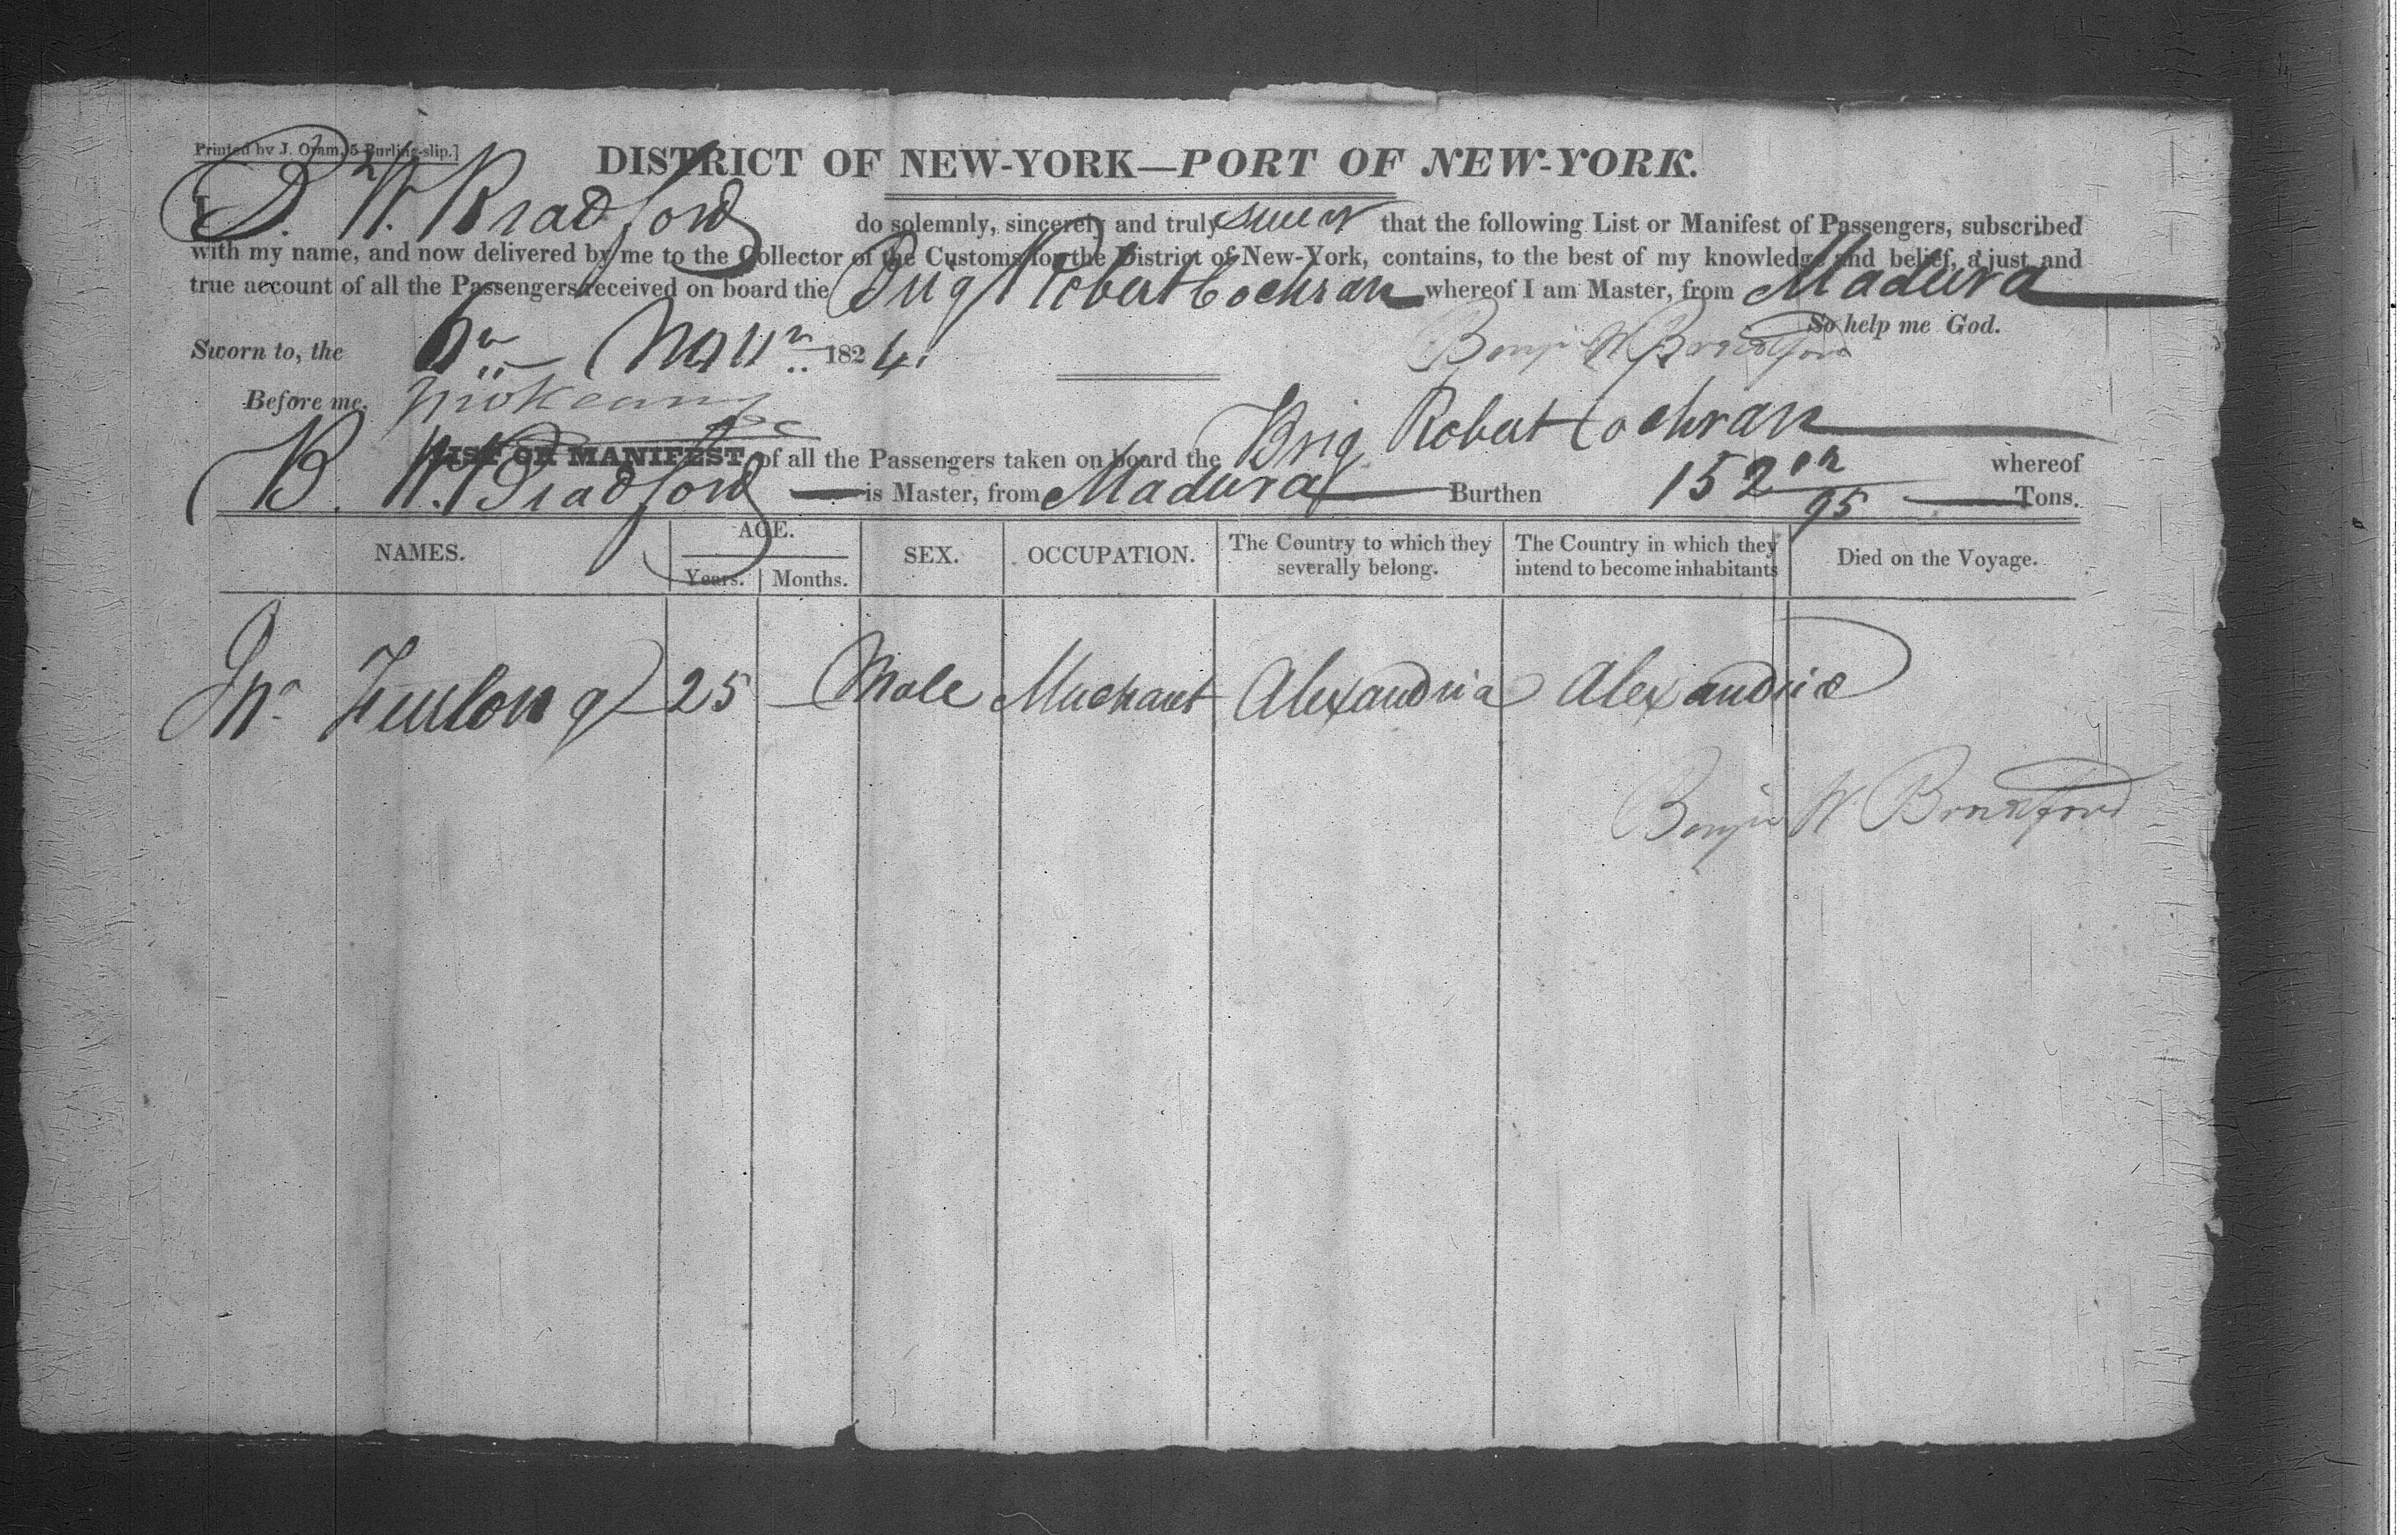 Printed by J. Oram, 5 Burling-slip.]
DISTRICT OF NEW-YORK—PORT OF NEW-YORK.
I, B. W. Bradford do solemnly, sincerely and truly swear that the following List or Manifest of Passengers, subscribed
with my name, and now delivered by me to the Collector of the Customs for the District of New-York, contains, to the best of my knowledge and belief, a just and
true account of all the Passengers received on board the Brig Robert Cochran whereof I am Master, from Madeira
So help me God.
Sworn to, the 1824.
Benjn W Bradford
Before me,
LIST OR MANIFEST of all the Passengers taken on board the Brig Robert Cochran whereof
B. W. Bradford is Master, from Madeira Burthen 152 /95 Tons.
NAMES. AGE. Years. Months. SEX. OCCUPATION. The Country to which they severally belong. The Country in which they intend to become inhabitants Died on the Voyage.
Jno Furlong 25 Male Merchant Alexandria Alexandria
Benjn W Bradford